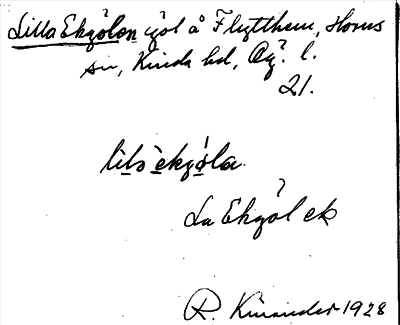 Lilla Ekgölen göl å Flytthem, Horns
sn, Kinda hd, Ög. l.
21.
lils èkgòla
La Ekgöl ek
R. Kinander 1928